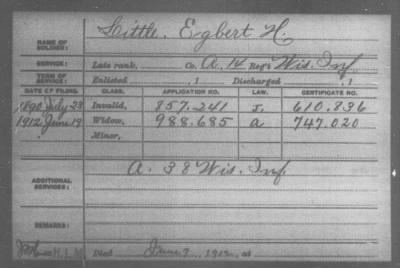 NAME OF SOLDIER: Little, Egbert H.
SERVICE: Late rank, Co. A, 14 Reg't Wis. Inf.
TERM OF SERVICE: Enlisted , 1 Discharged , 1
DATE OF FILING. CLASS. APPLICATION NO. LAW. CERTIFICATE NO.
1890 July 23 Invalid, 857.241 J. 610.836
1912 June 19 Widow, 988.685 a 747.020
Minor,
ADDITIONAL SERVICES: A. 38 Wis. Inf
REMARKS:
Died June 7 1912, at